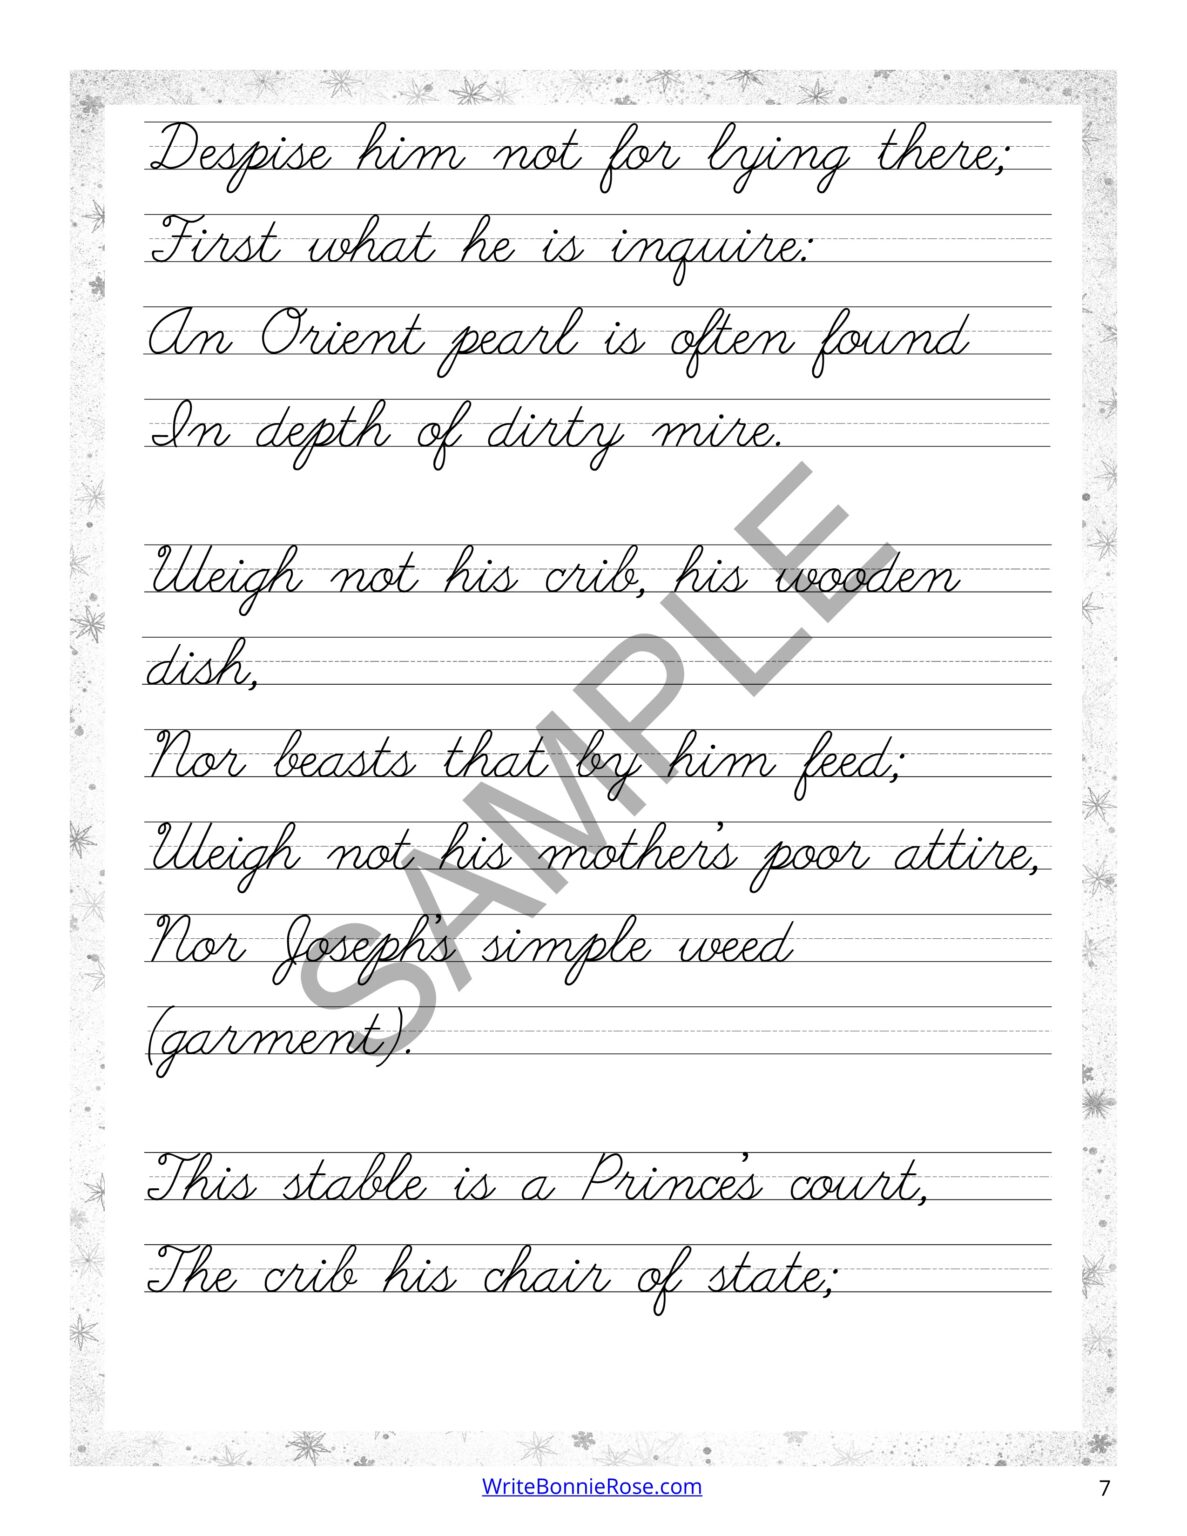 Despise him not for lying there;
First what he is inquire:
An Orient pearl is often found
In depth of dirty mire.
Weigh not his crib, his wooden
dish,
Nor beasts that by him feed;
Weigh not his mother's poor attire,
Nor Joseph's simple weed
(garment).
This stable is a Prince's court,
The crib his chair of state;
SAMPLE
WriteBonnieRose.com
7